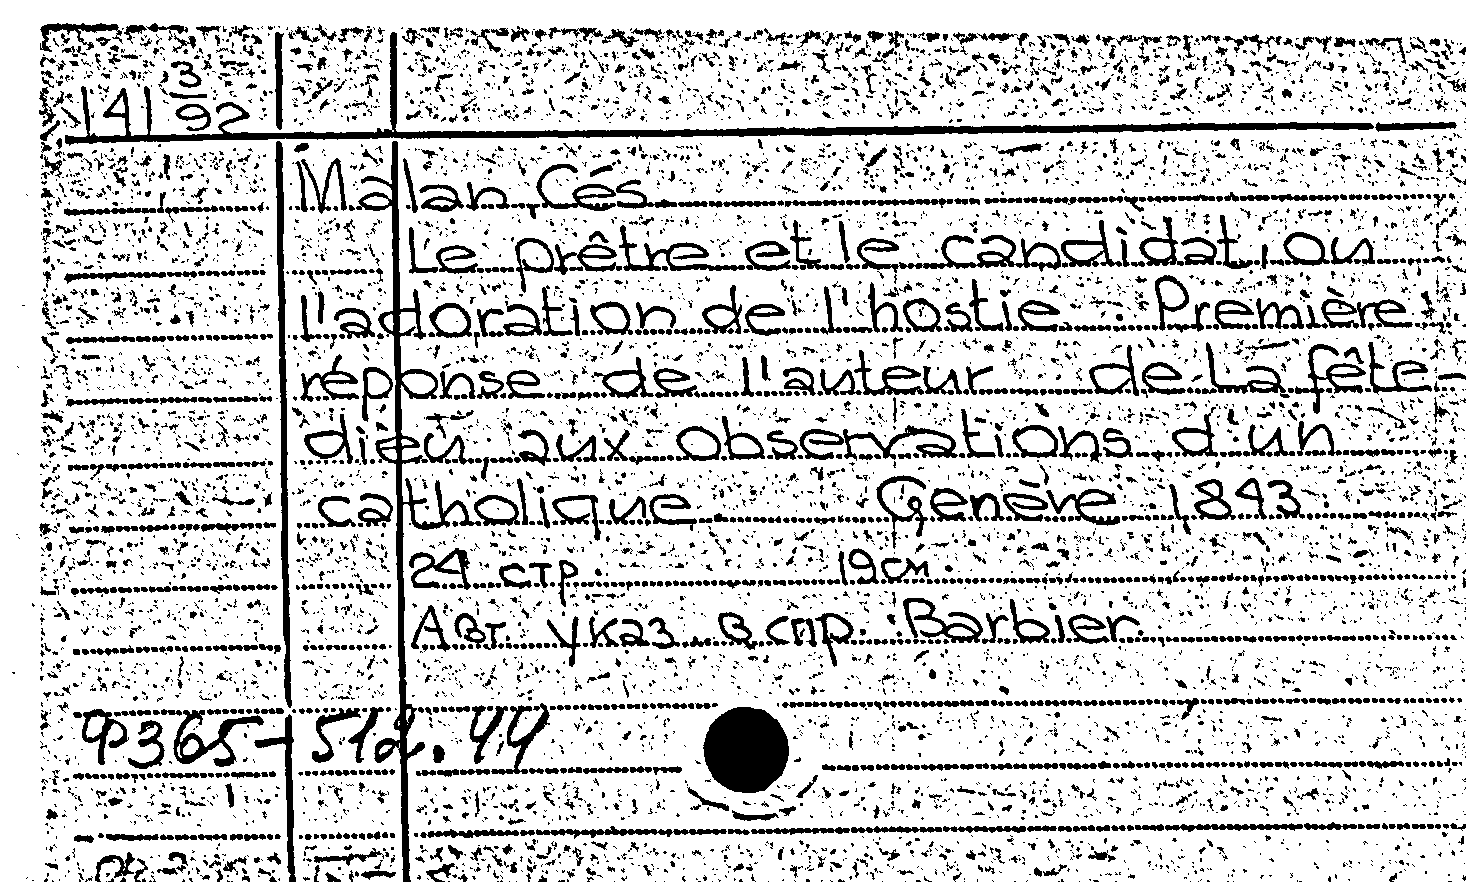 141 3/92
Malan, Cés.
Le prêtre et le candidat, ou
l'adoration de l'hostie. Première
réponse de l'auteur de La fête-
dieu, aux observations d'un
catholique. Genève. 1843.
24 стр. 19 см.
Авт. указ. в спр.: Barbier.
Ф365-512.44